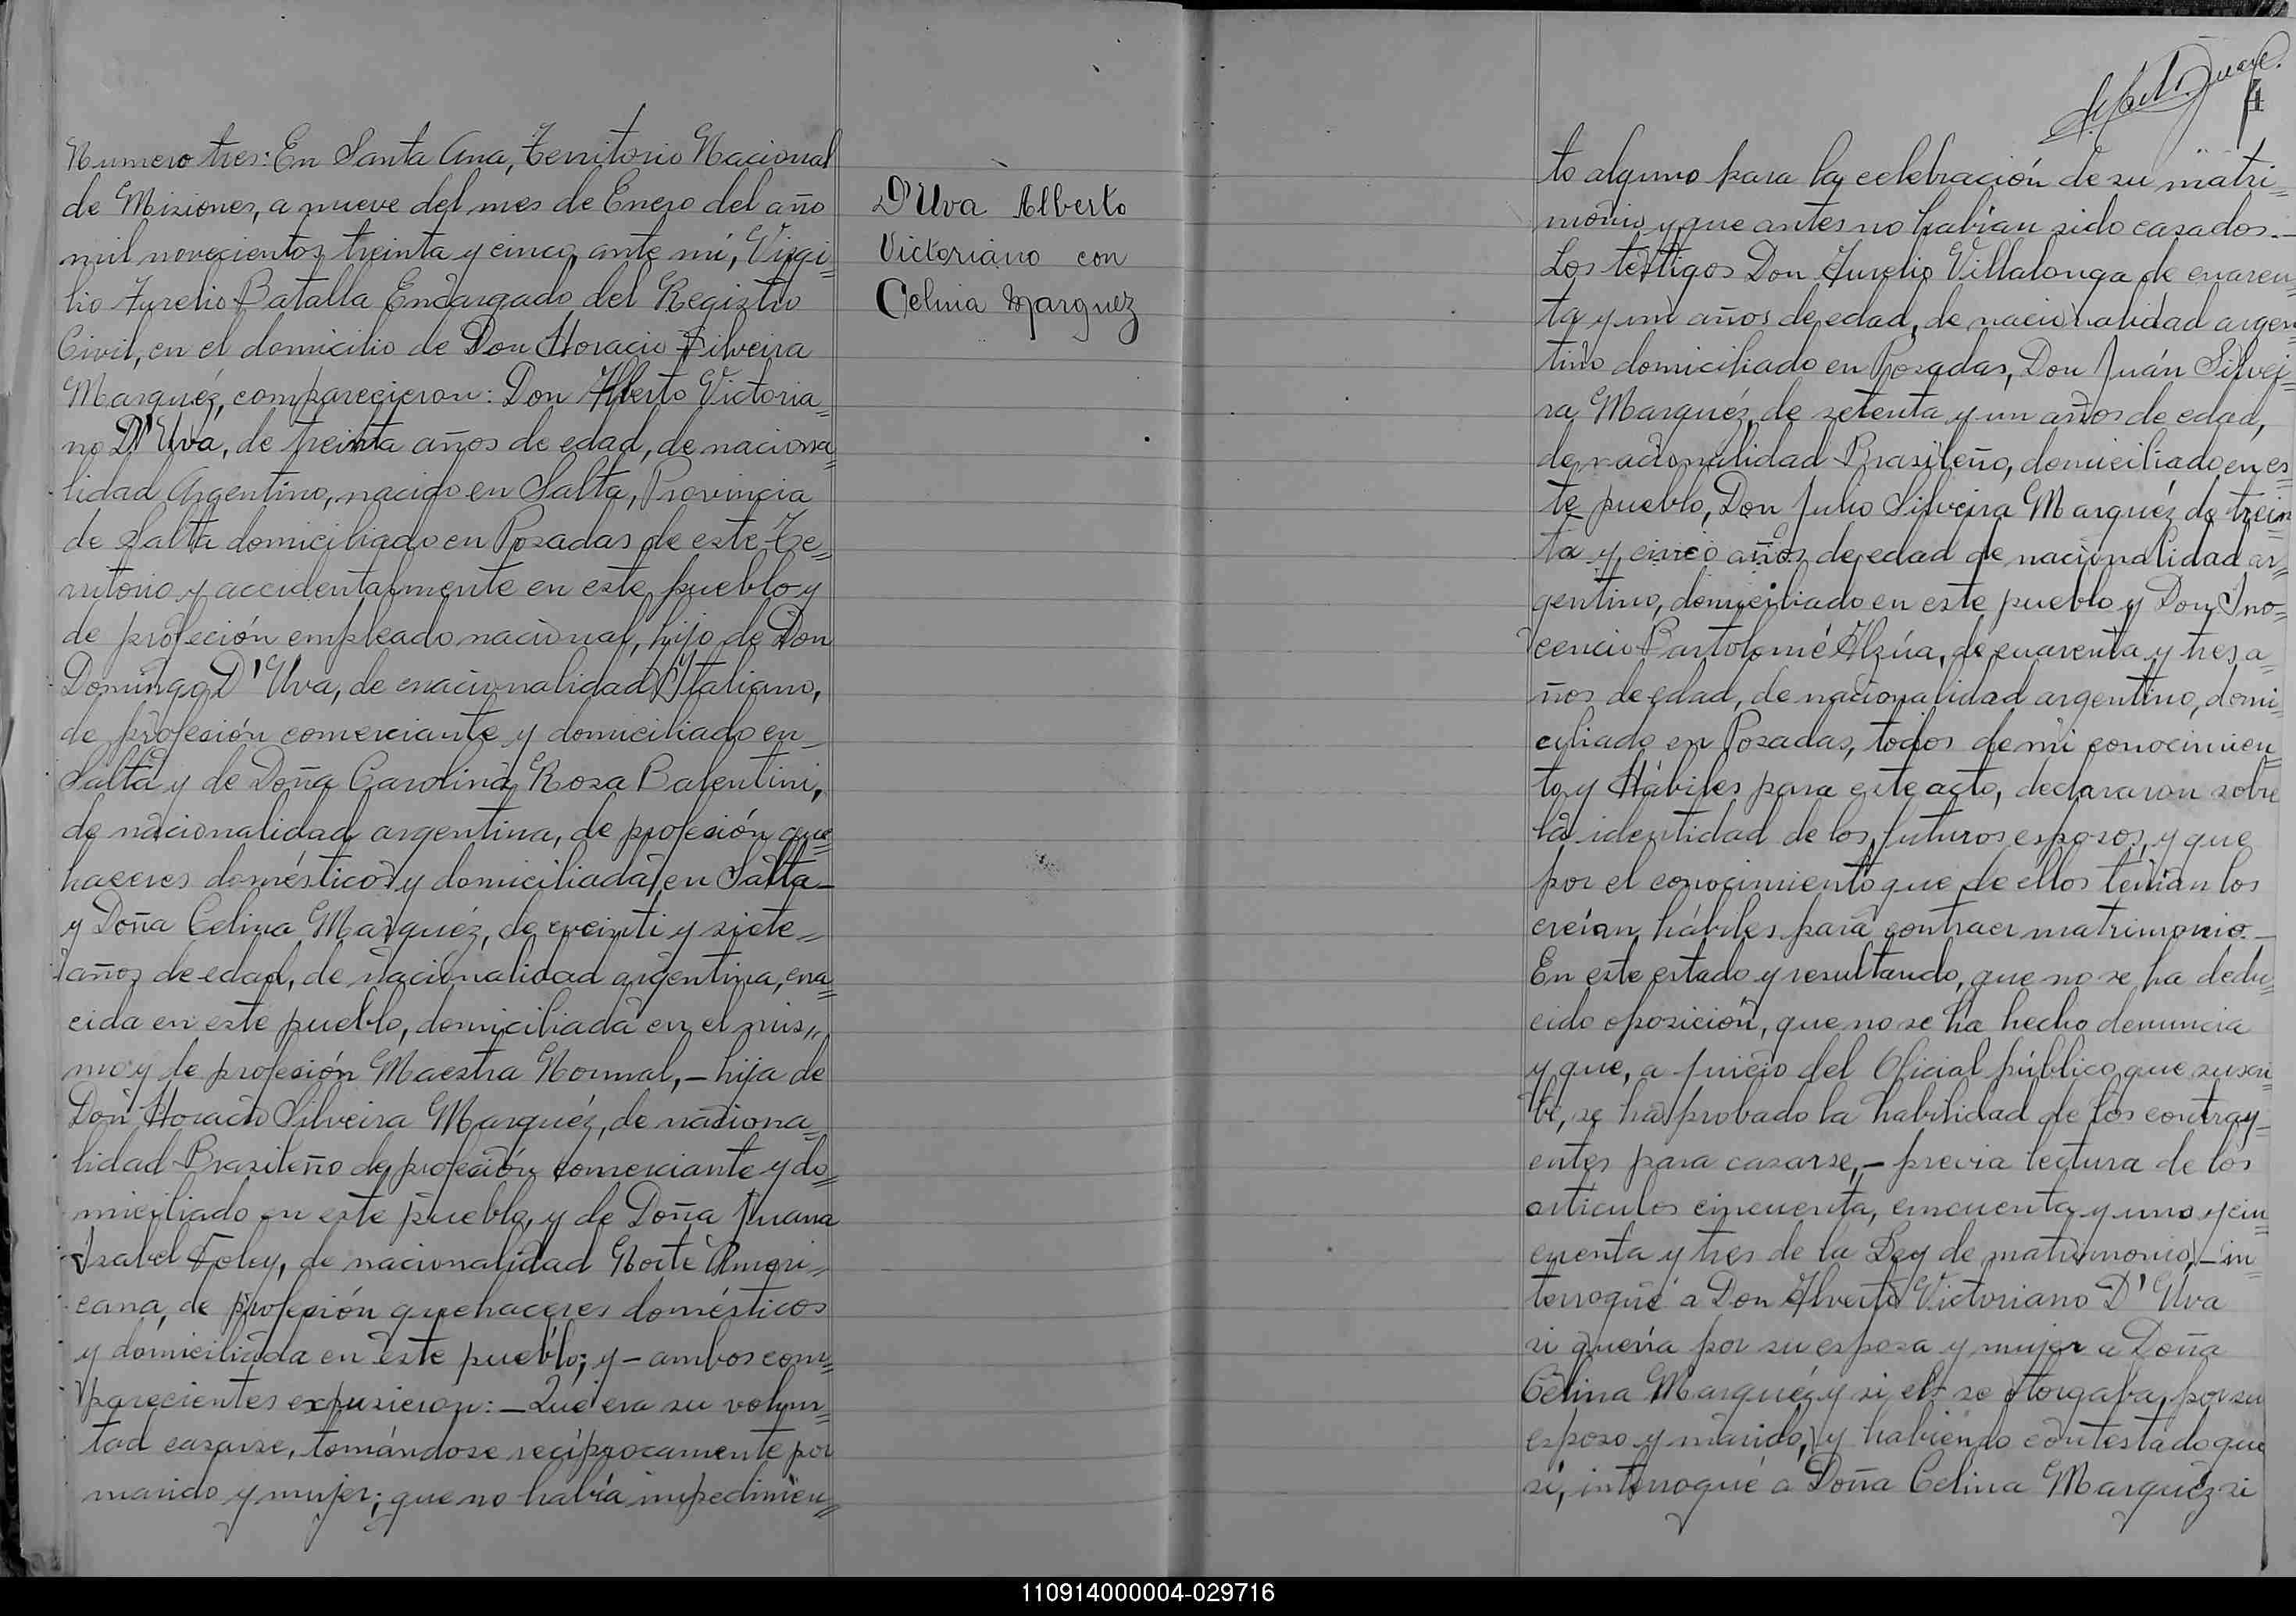 Numero tres: En Santa Ana, Territorio Nacional
de Misiones, a nueve del mes de Enero del año
mil novecientos treinta y cinco, ante mi, Virgi=
lio Aurelio Batalla Encargado del Registro
Civil, en el domicilio de Don Horacio Silveira
Marquéz, comparecieron: Don Alberto Victoria=
no D'Uva, de treinta años de edad, de naciona=
lidad Argentino, nacido en Salta, Provincia
de Salta domiciliado en Posadas de este Te=
rritorio y accidentalmente en este pueblo y
de profeción empleado nacional, hijo de Don
Domingo D'Uva, de nacionalidad Italiano,
de profeción comerciante y domiciliado en
Salta y de Doña Carolina Rosa Balentini,
de nacionalidad argentina, de profeción que=
haceres domésticos y domiciliada en Salta—
y Doña Celina Marquéz, de veinti y siete=
años de edad, de nacionalidad argentina, na=
cida en este pueblo, domiciliada en el mis=
mo y de profeción Maestra Normal,— hija de
Don Horacio Silveira Marquéz, de naciona=
lidad Brasileño de profeción comerciante y do=
miciliado en este pueblo, y de Doña Juana
Isabel Foley, de nacionalidad Norte Ameri=
cana, de profeción quehaceres domésticos
y domiciliada en este pueblo; y— ambos com=
parecientes expusieron:— Que era su volun=
tad casarse, tomándose recíprocamente por
marido y mujer; que no había impedimen=
D'Uva Alberto
Victoriano con
Celina Marquez
4
to alguno para la celebración de su matri=
monio y que antes no habían sido casados.—
Los testigos Don Aurelio Villalonga de cuaren=
ta y un años de edad, de nacionalidad argen
tino domiciliado en Posadas, Don Juán Silvei=
ra Marquéz, de setenta y un años de edad,
de nacionalidad Brasileño, domiciliado en es=
te pueblo, Don Julio Silveira Marquéz de trein
ta y cinco años de edad de nacionalidad ar=
gentino, domiciliado en este pueblo y Don Ino=
cencio Bartolomé Alzúa, de cuarenta y tres a=
ños de edad, de nacionalidad argentino, domi=
ciliado en Posadas, todos de mi conocimien=
to y Hábiles para este acto, declararon sobre
la identidad de los futuros esposos, y que
por el conocimiento que de ellos tenían los
creían hábiles para contraer matrimonio.—
En este estado y resultando, que no se ha dedu=
cido oposición, que no se ha hecho denuncia
y que, a juicio del Oficial público que suscri=
be, se ha probado la habilidad de los contray=
entes para casarse,— previa lectura de los
articulos cincuenta, cincuenta y uno y cin=
cuenta y tres de la Ley de matrimonio,— in=
terrogué a Don Alverto Victoriano D'Uva
si quería por su esposa y mujer a Doña
Celina Marquéz y si el se otorgaba por su
esposo y marido, y habiendo contestado que
si, interrogué a Doña Celina Marquéz si
110914000004-029716